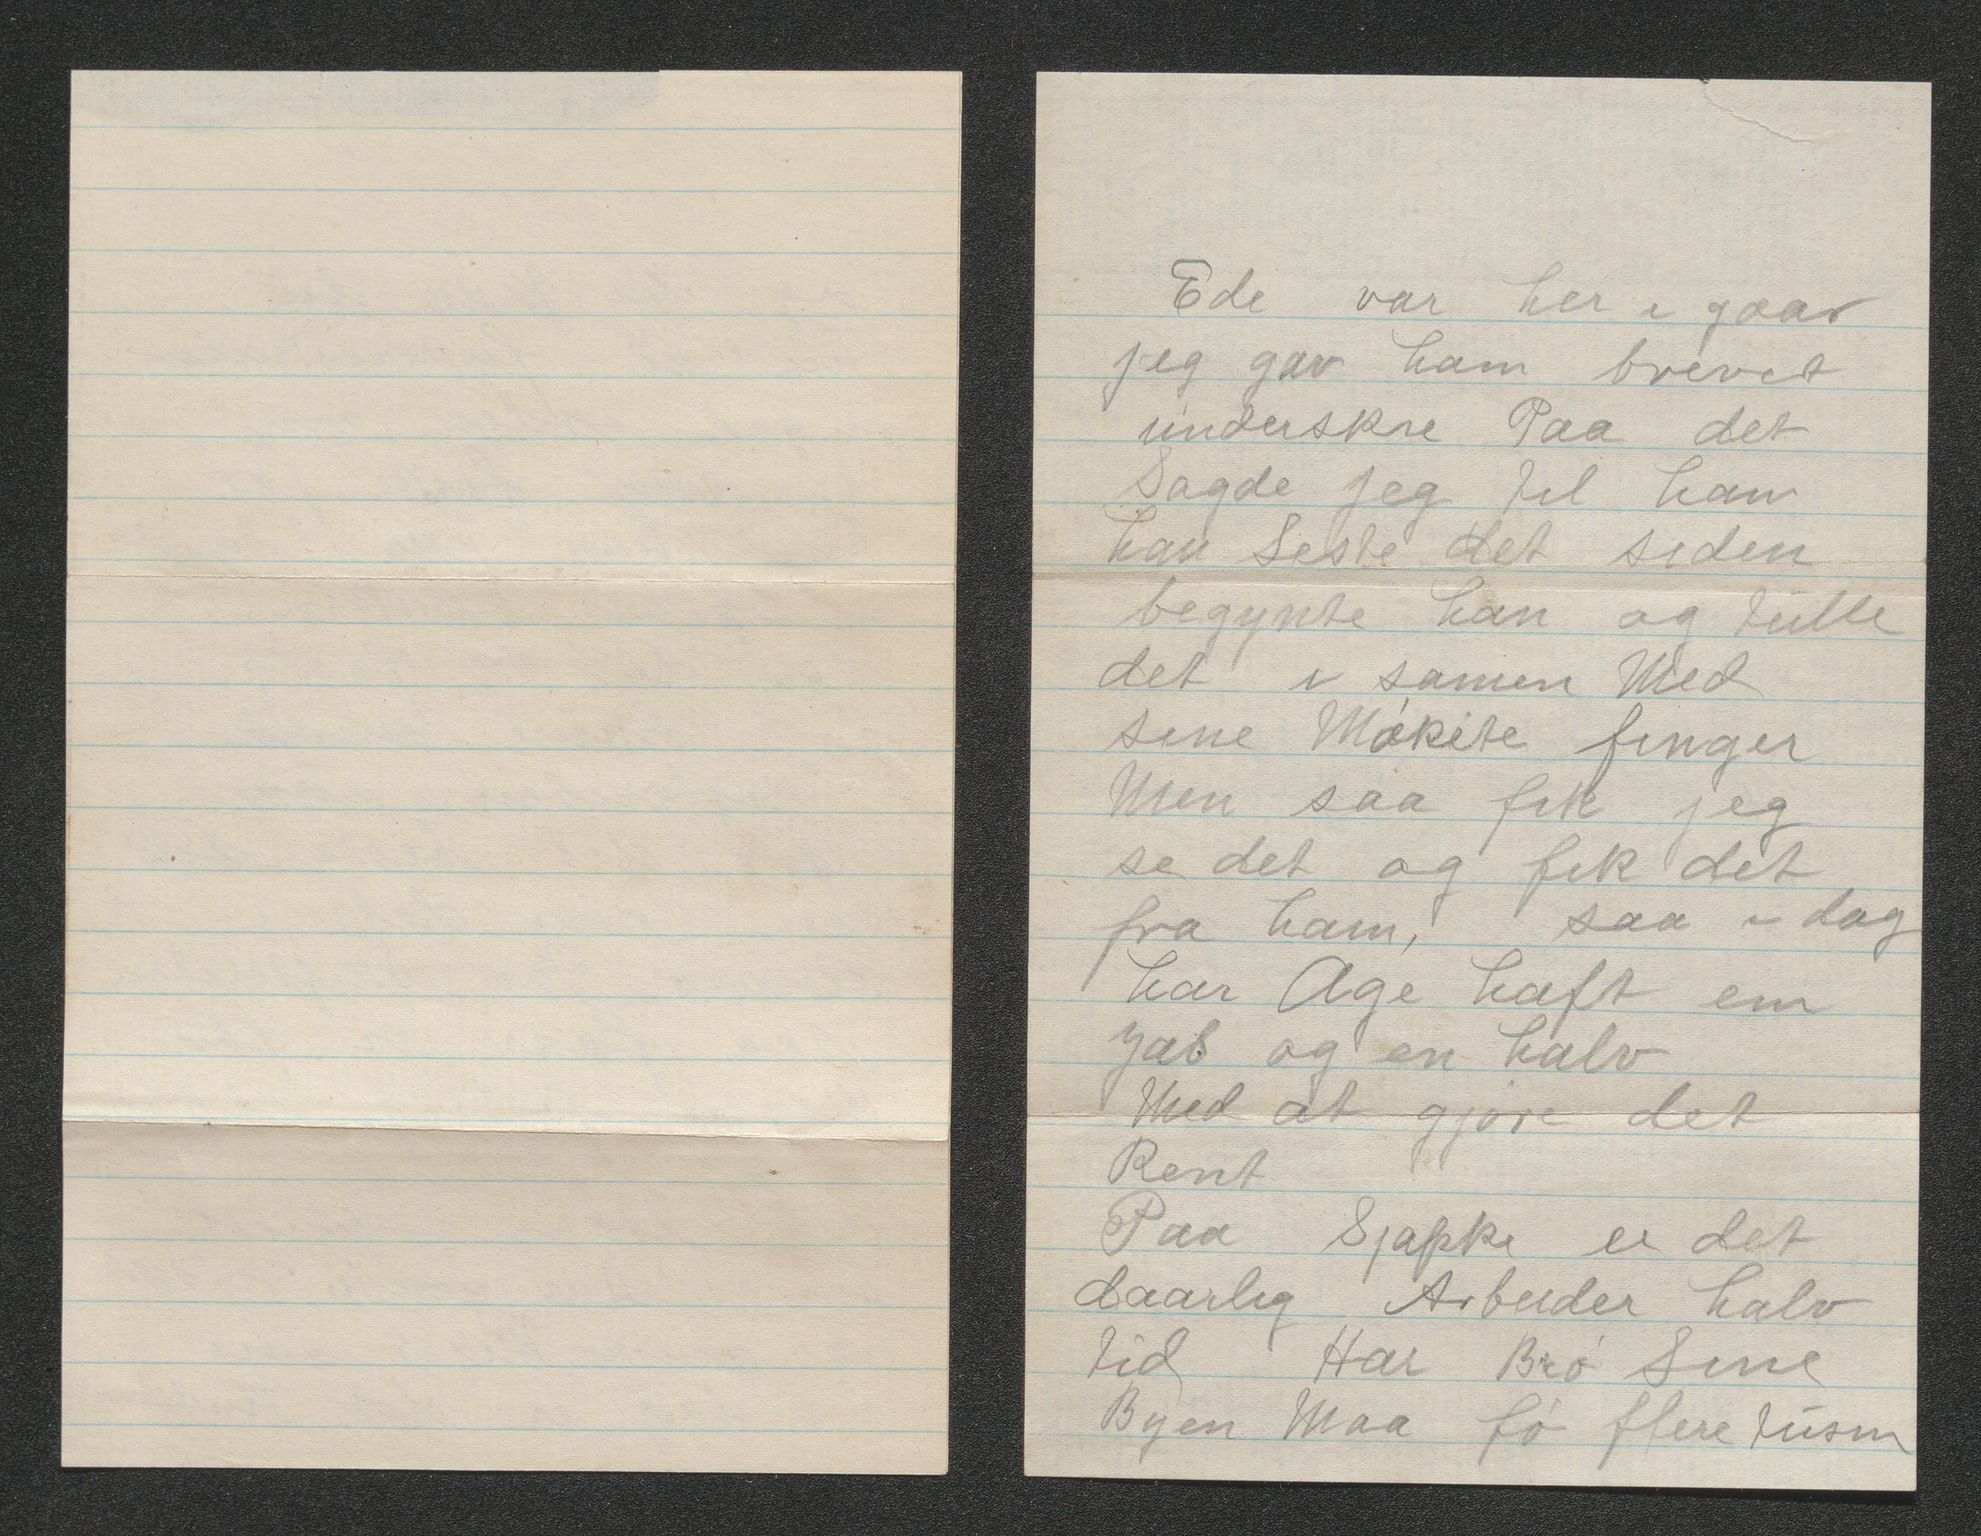 Ede var her i gaar
jeg gav ham brevet
underskre Paa det
Sagde jeg til han
han Leste det siden
begynte han og tulle
det i samen Med
sine Møkite finger
Men saa fik jeg
se det og fik det
fra ham, saa i dag
har Age haft em
Jab og en halv
Med at gjøre det
Rent
Paa Sjapke er det
daarlig Arbeider halv
tid Har Brø Sine
Byen Maa fø flere tusm